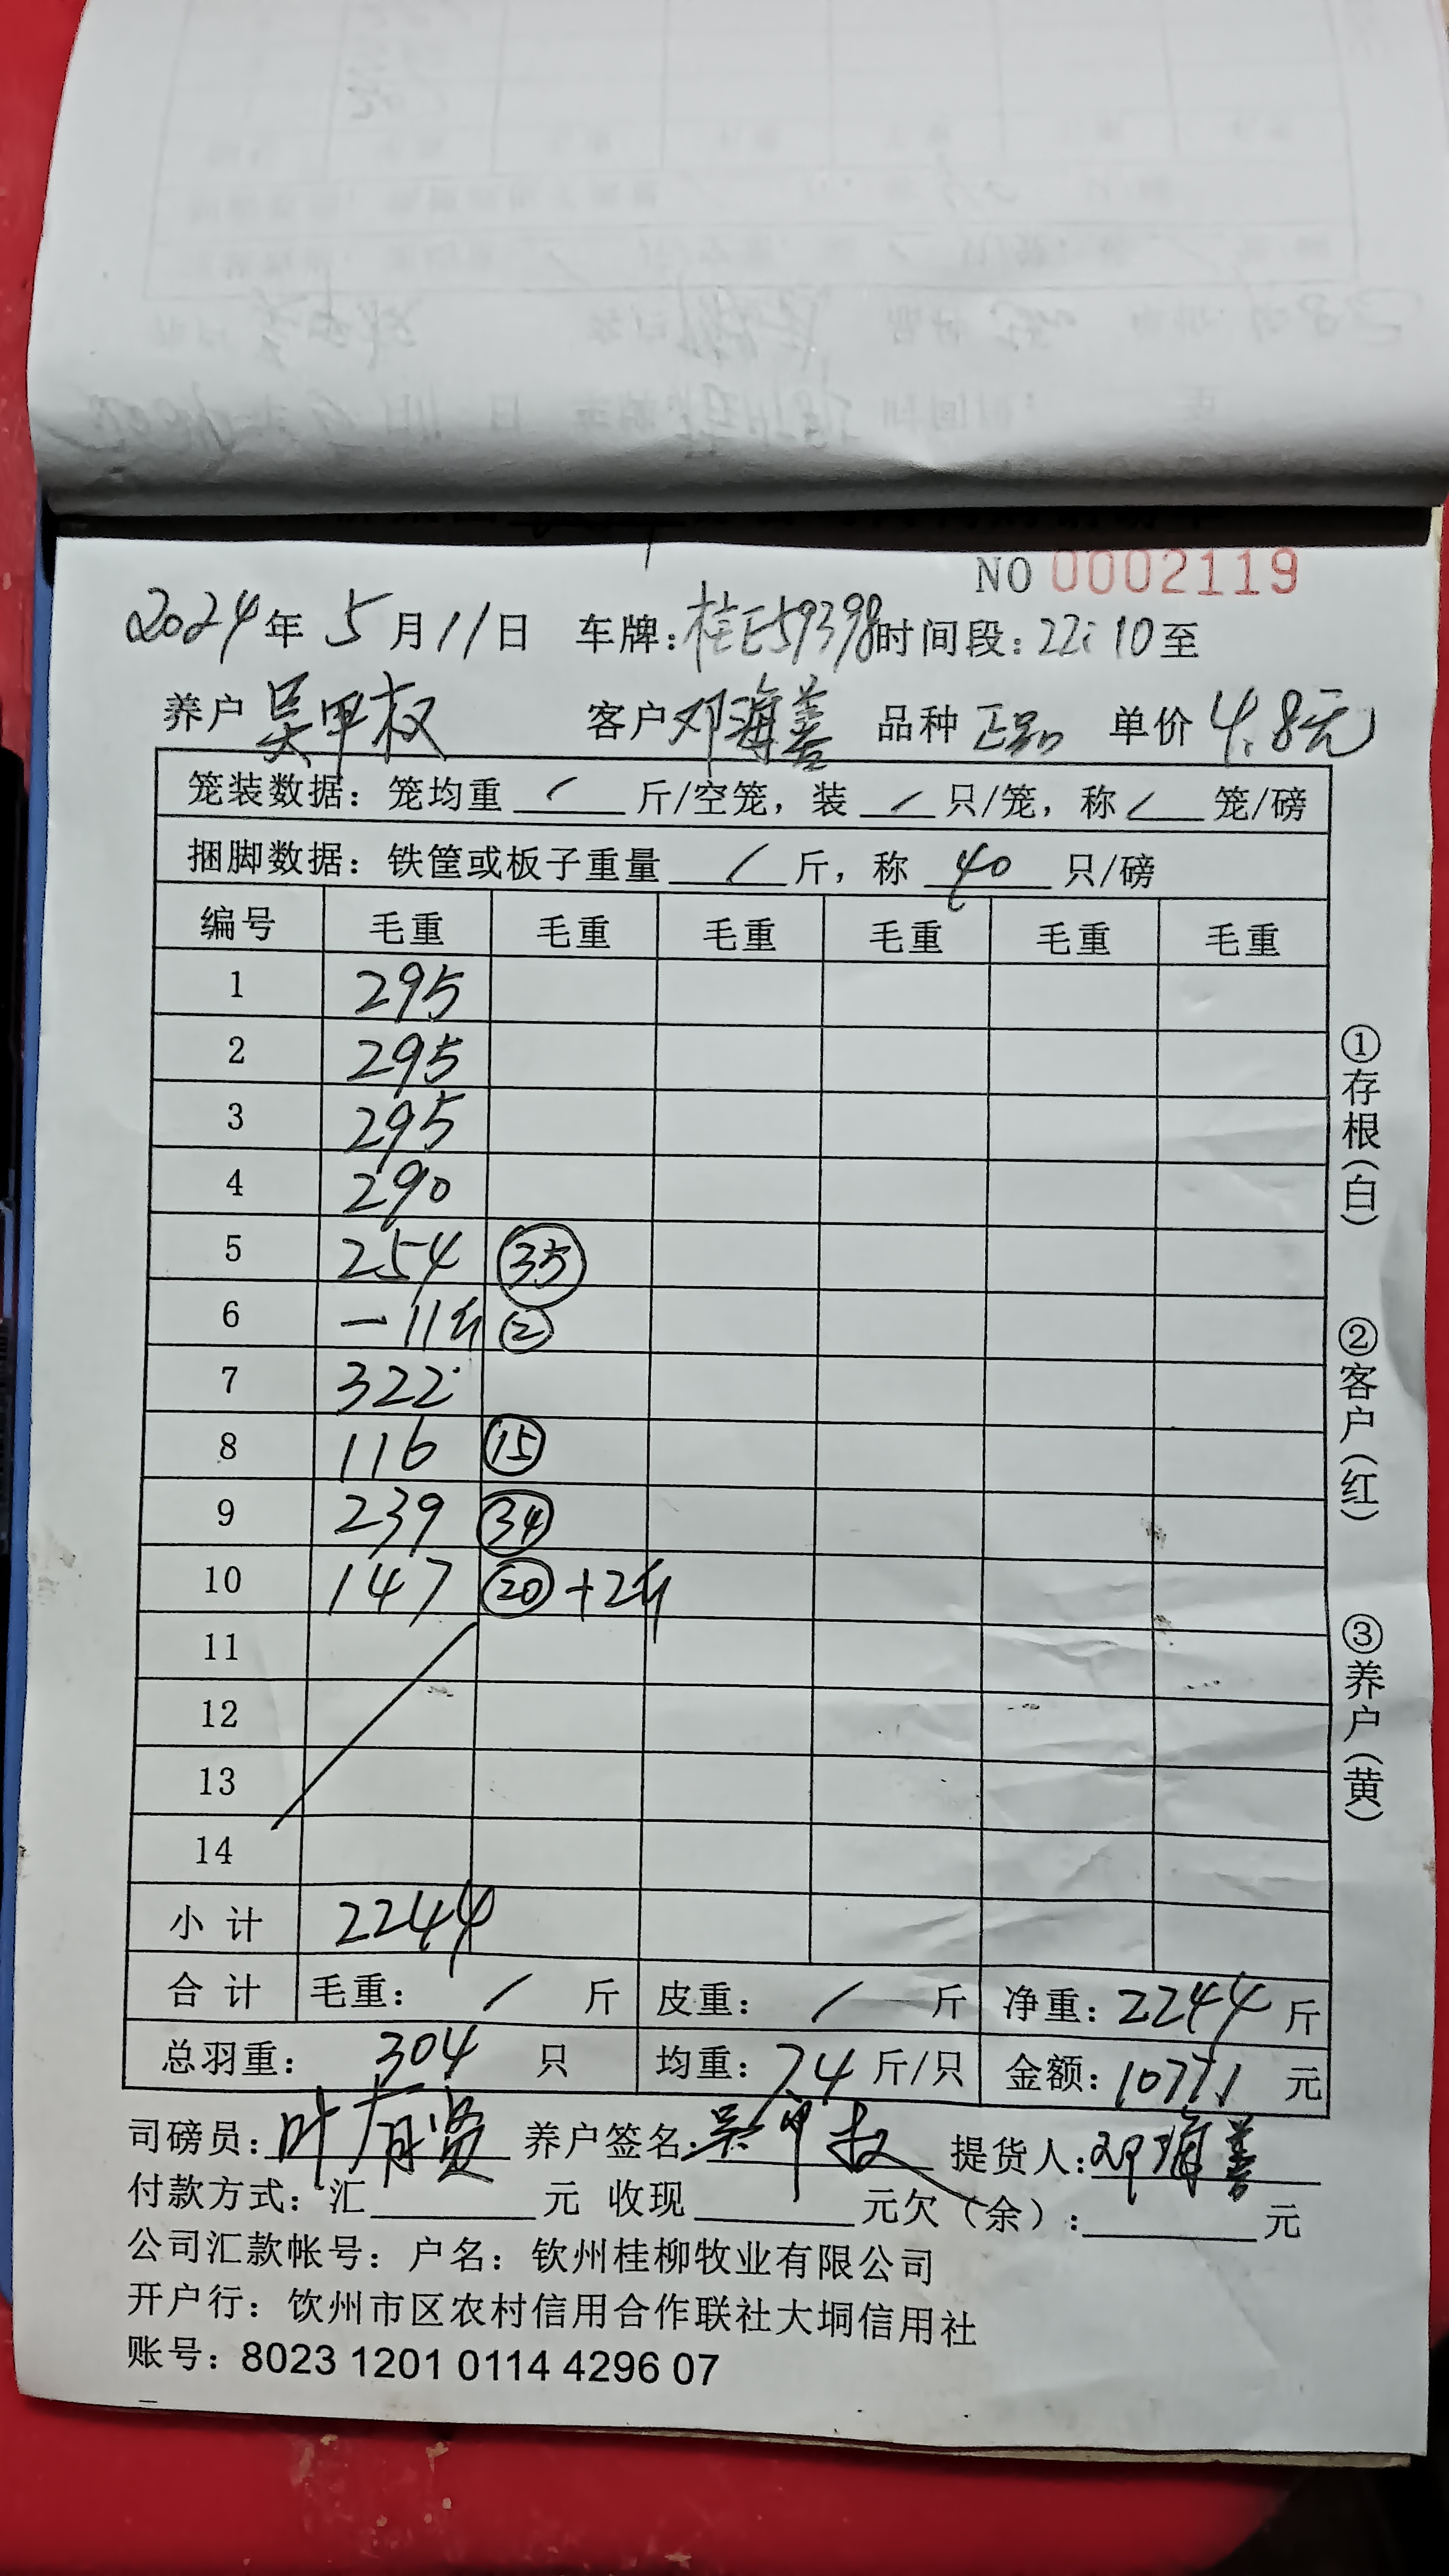 NO 0002119
2024年 5月11日 车牌:桂E59398时间段:22:10至
养户 吴甲权 客户 邓海善 品种 正品 单价 4.8元
笼装数据：笼均重 / 斤/空笼，装 / 只/笼，称 / 笼/磅
捆脚数据：铁筐或板子重量 / 斤，称 40 只/磅
编号 毛重 毛重 毛重 毛重 毛重 毛重
1 295
2 295
3 295
4 290
5 254 ㉟
6 一11斤 ②
7 322
8 116 ⑮
9 239 ㉞
10 147 ⑳+2斤
11
12
13
14
小计 2244
合计 毛重： / 斤 皮重： / 斤 净重：2244斤
总羽重： 304 只 均重：7.4斤/只 金额：10771 元
司磅员：叶有贤 养户签名：吴甲权 提货人：邓海善
付款方式：汇 元 收现 元欠（余）： 元
公司汇款帐号：户名：钦州桂柳牧业有限公司
开户行：钦州市区农村信用合作联社大垌信用社
账号：8023 1201 0114 4296 07
①存根（白）
②客户（红）
③养户（黄）